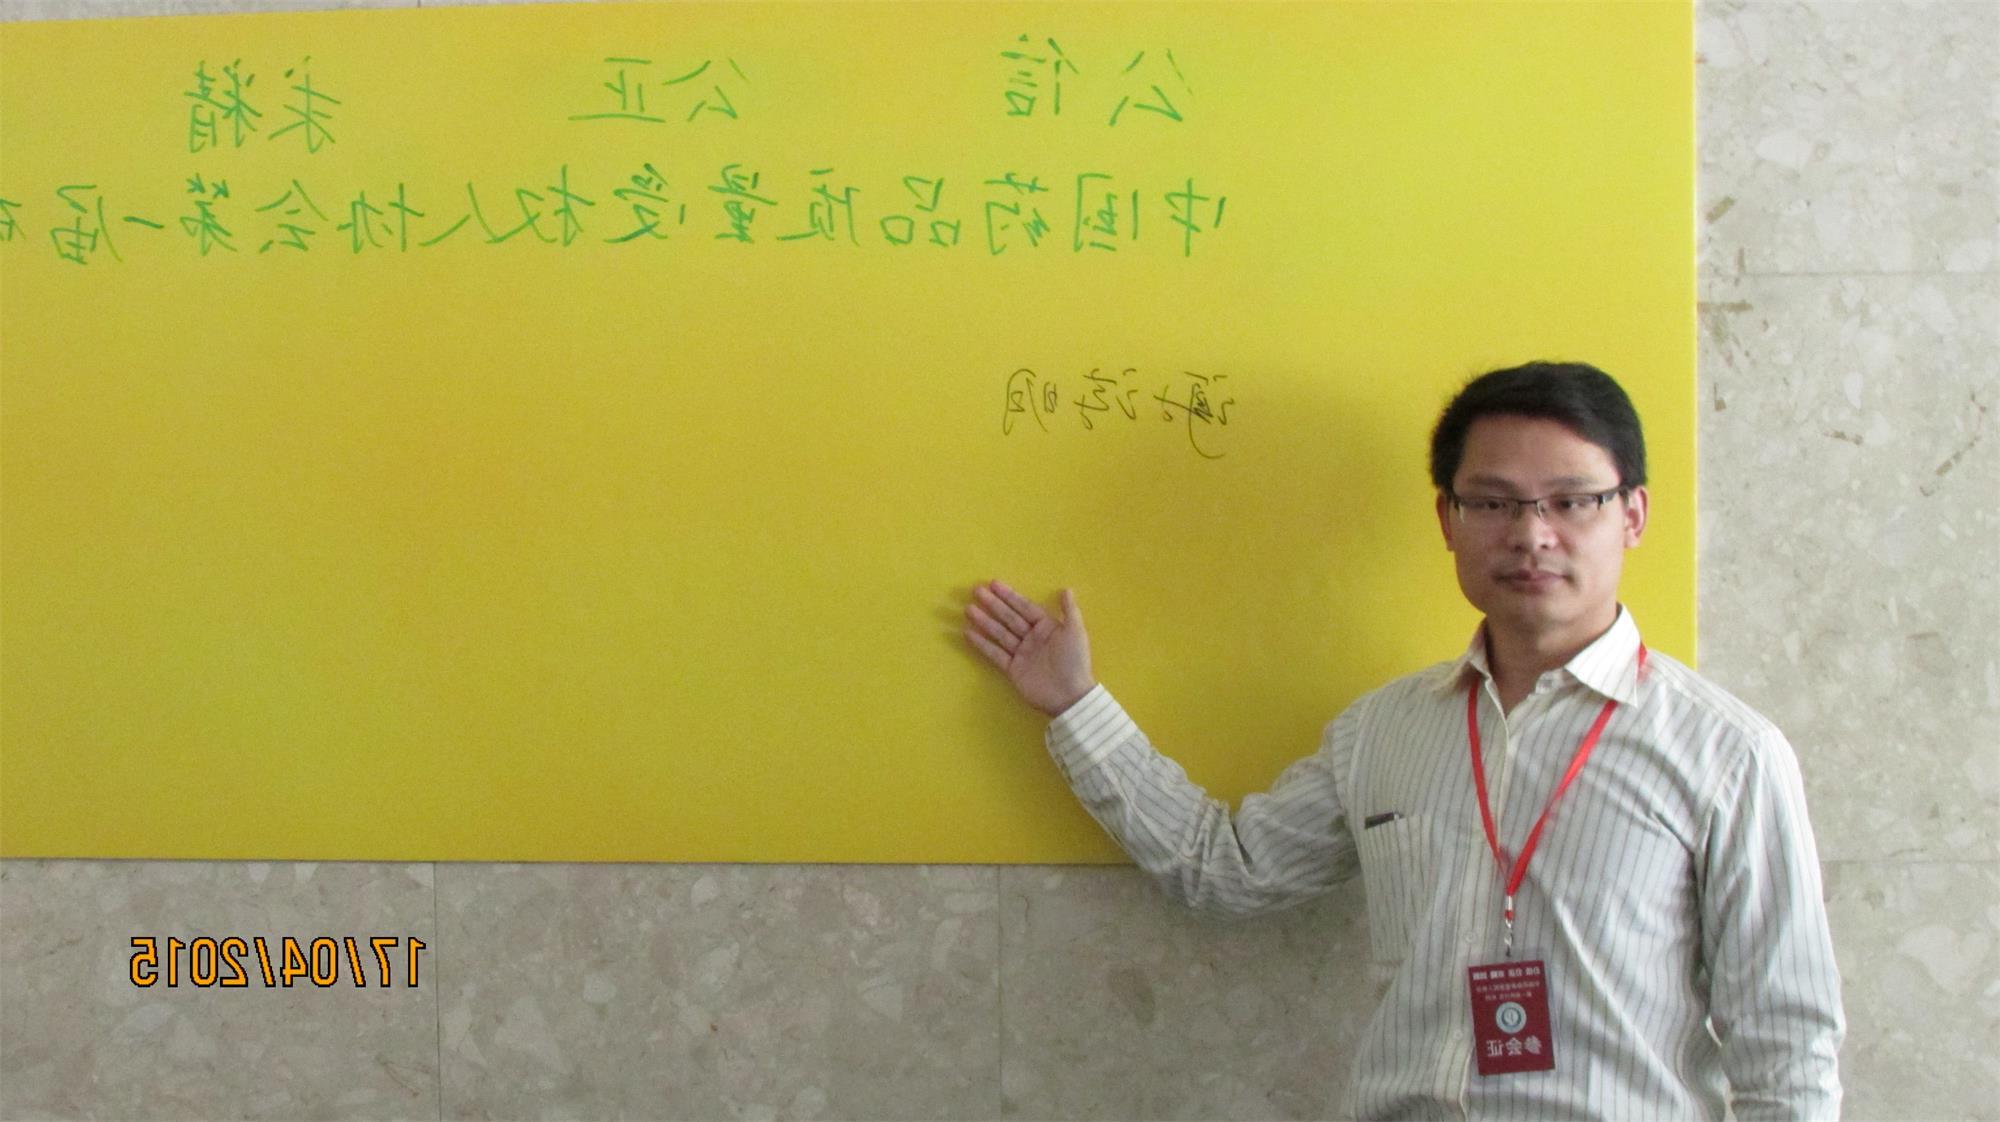 公信 公正 求精
中国药品质量受权人协会第一届
17/04/2015
参会证